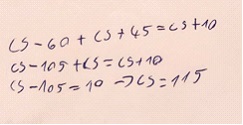 CS-60+CS+45=CS+10
CS-105+CS=CS+10
CS-105=10→CS=115